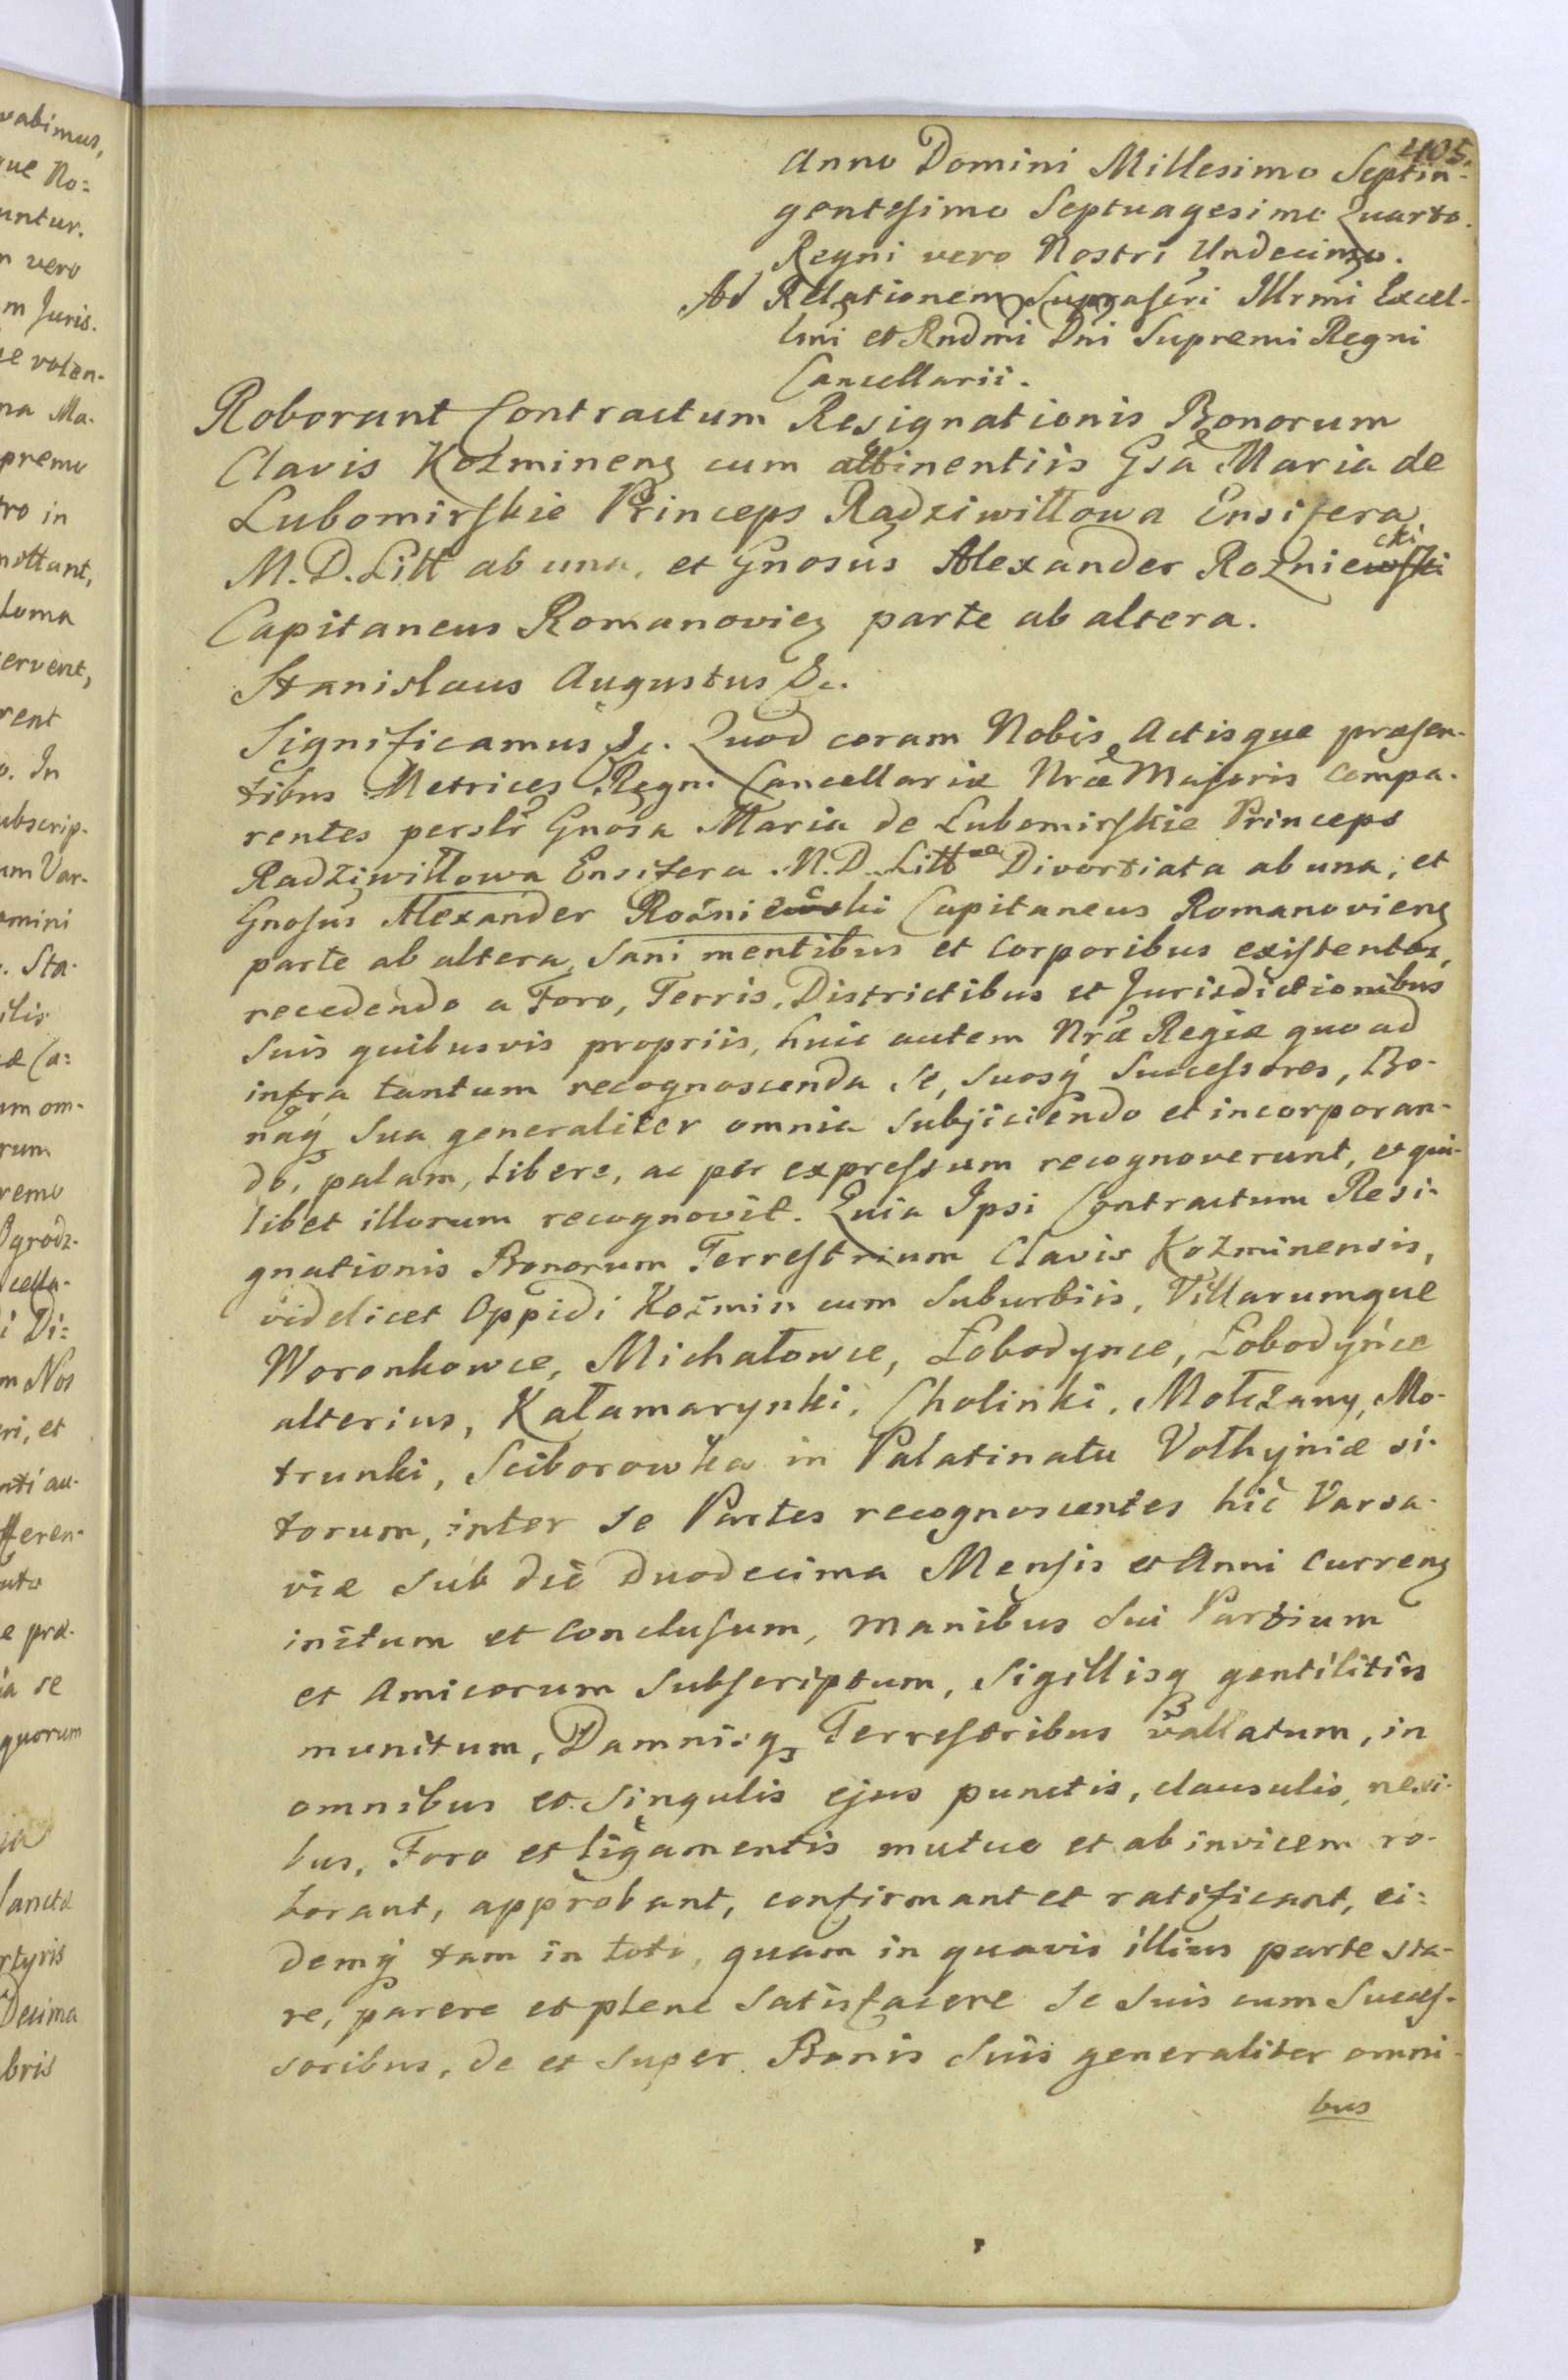 vabimus,
que No=
untur.
m vero
m Juris.
se volen-
na Ma-
premo
tro in
mittant,
loma
servent,
rent
o. In
ubscrip-
um Var-
omini
. Sta-
ilis
æ Ca=
um om-
rum
remo
Ogrodz-
cella-
i Di=
m Nos
ri, et
nti au-
fferen-
uto
e præ-
ia se
quorum
Sanctæ
rtyris
Decima
bris
405.
Anno Domini Millesimo Septin-
gentesimo Septuagesimo Quarto.
Regni vero Nostri Undecimo.
Ad Relationem Suprascri Illrmi Excel-
lmi et Rndmi Dni Supremi Regni
Cancellarii.
Roborant Contractum Resignationis Bonorum
Clavis Kozminens cum attinentiis Gsa Maria de
Lubomirskie Princeps Radziwiłłowa Ensifera
M. D. Litt ab una, et Gnosus Alexander Rożniecki
Capitaneus Romanoviens parte ab altera.
Stanislaus Augustus &c.
Significamus &c. Quod coram Nobis Actisque præsen-
tibus Metrices Regni Cancellariæ Nræ Majoris compa-
rentes perslr Gnosa Maria de Lubomirskie Princeps
Radziwiłłowa Ensifera M. D. Litt Divortiata ab una, et
Gnosus Alexander Rożniecki Capitaneus Romanoviens
parte ab altera, Sani mentibus et Corporibus existentes,
recedendo a Foro, Terris, Districtibus et Jurisdictionibus
Suis quibusvis propriis, huic autem Nræ Regiæ quoad
infra tantum recognoscenda Se, Suosq Successores, Bo-
naq Sua generaliter omnia Subjiciendo et incorporan-
do, palam, libere, ac per expressum recognoverunt, et qui-
libet illorum recognovit. Quia Ipsi Contractum Resi-
gnationis Bonorum Terrestrium Clavis Kozminensis,
videlicet Oppidi Koźmin cum Suburbiis, Villarumque
Woronkowce, Michałowce, Łobodynce, Łobodyńce
alterius, Kałamarynki, Cholinki, Mołczany, Mo-
trunki, Sciborowka in Palatinatu Volhyniæ si-
torum, inter Se Partes recognoscentes hic Varsa-
viæ Sub die Duodecima Mensis et Anni Currens
initum et Conclusum, manibus Sui Partium
et Amicorum Subscriptum, Sigillisq gentilitiis
munitum, Damnisq Terrestribus 3 vallatum, in
omnibus et Singulis ejus punctis, clausulis, nexi-
bus, Foro et ligamentis mutuo et ab invicem ro-
borant, approbant, confirmant et ratificant, ei=
demq tam in toto, quam in quavis illius parte sta-
re, parere et plene Satisfacere Se Suis cum Succes-
soribus, de et Super Bonis Suis generaliter omni-
bus